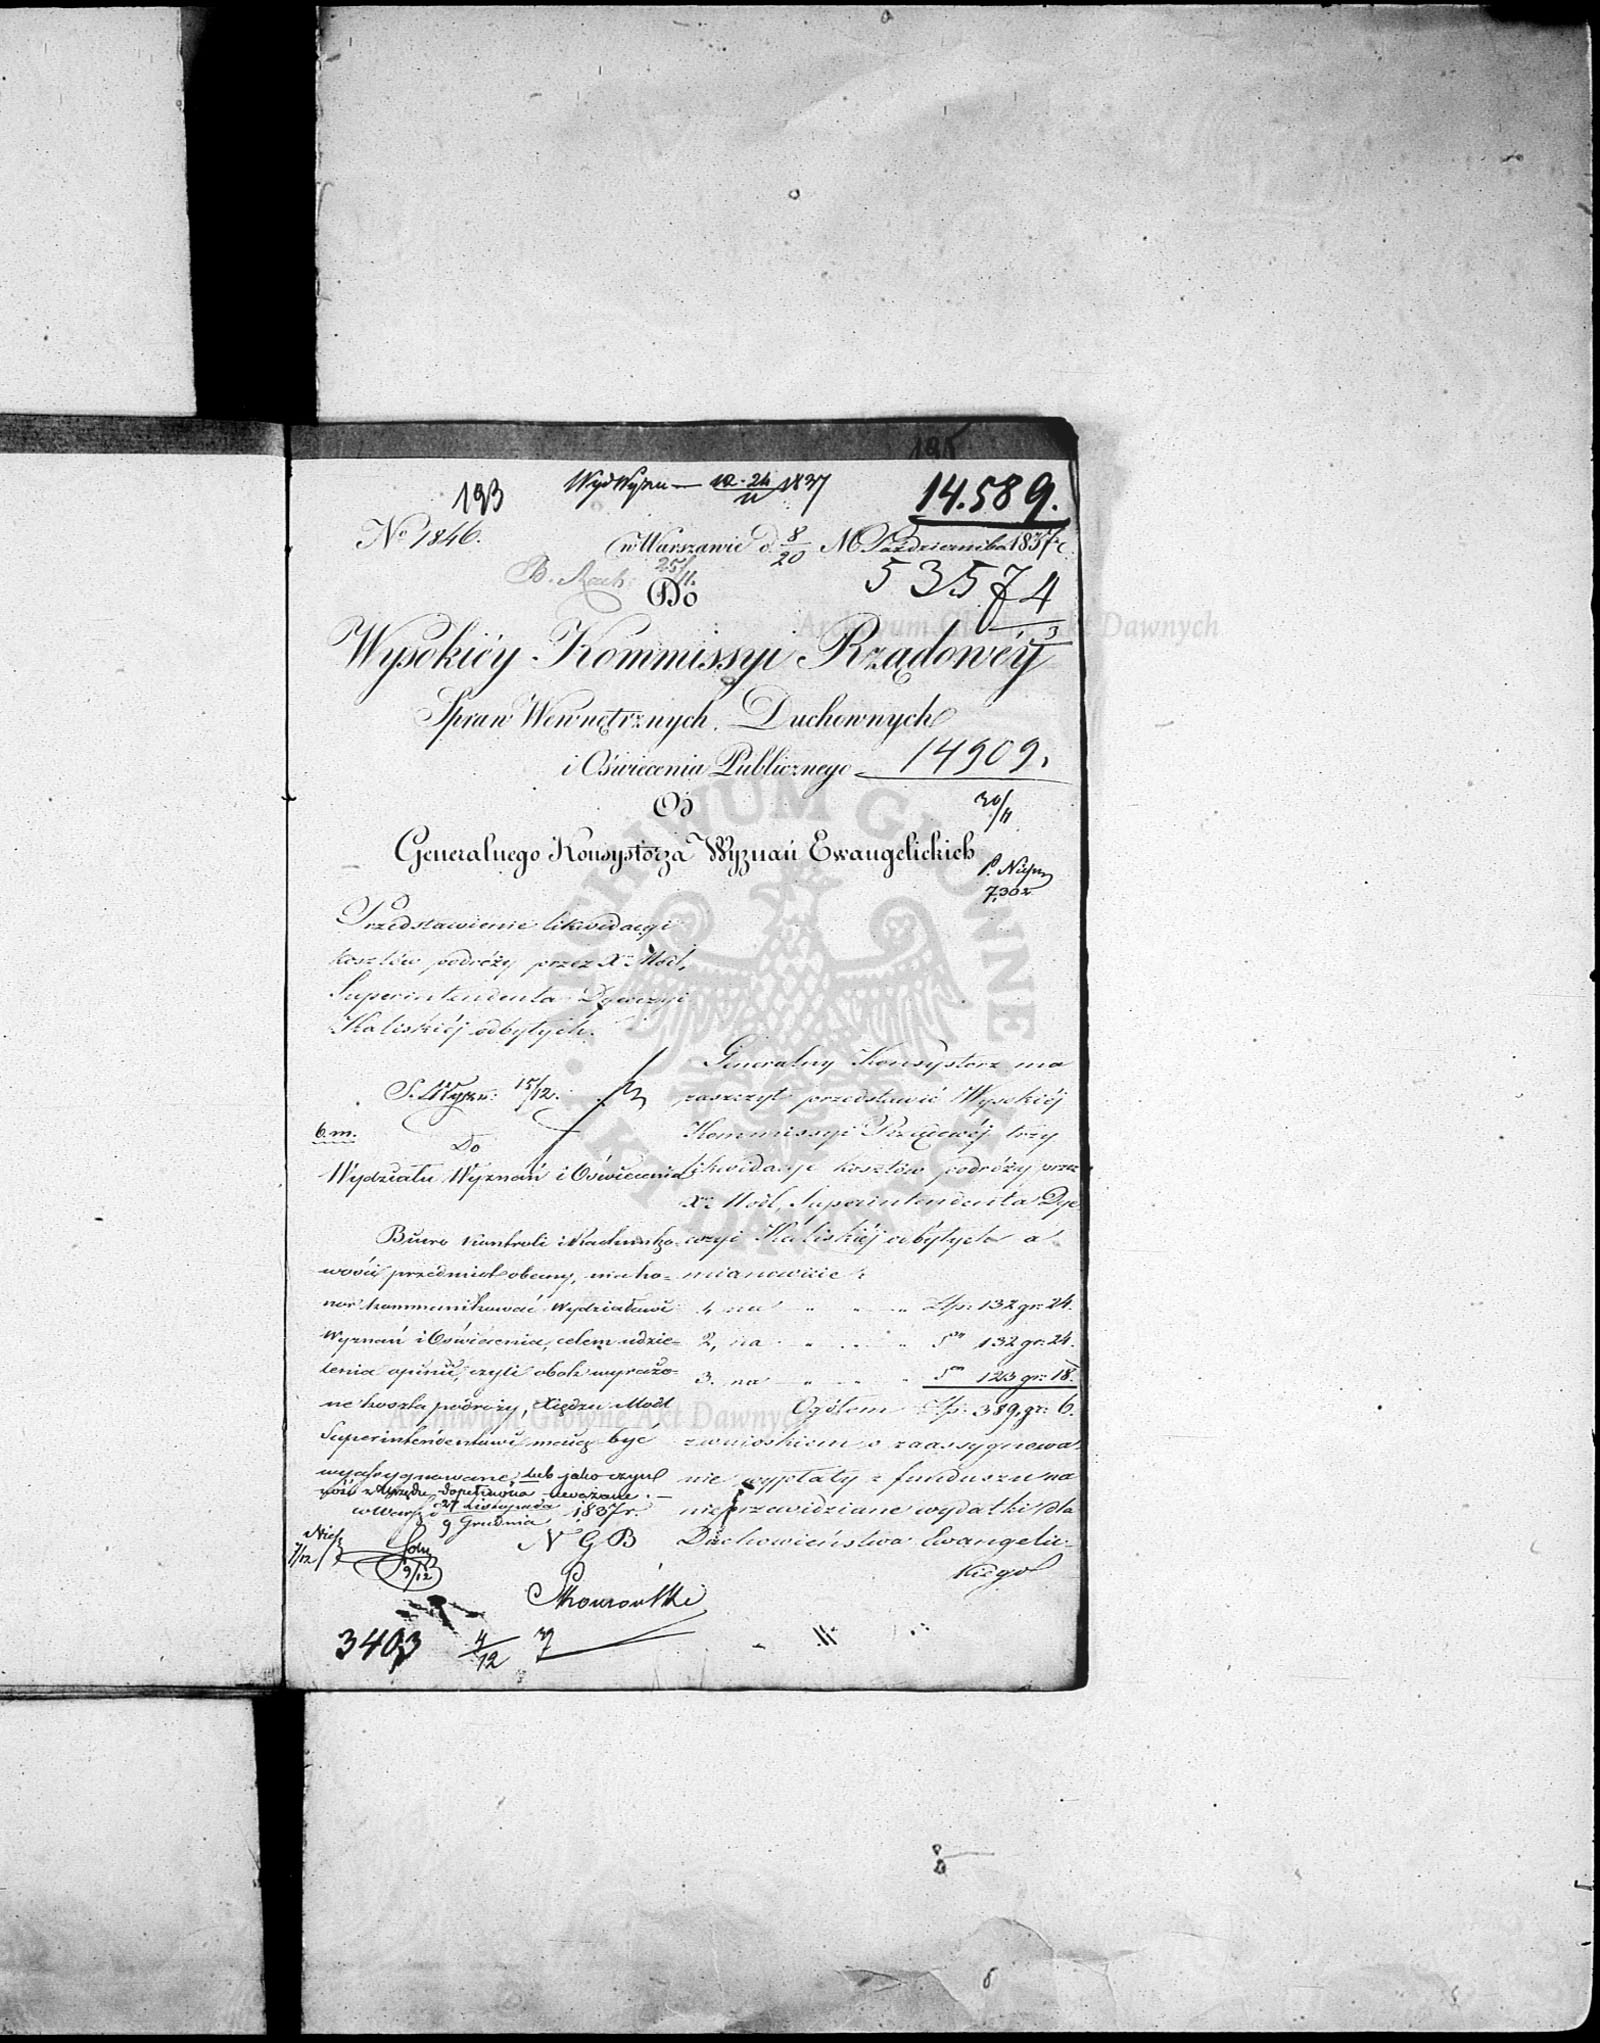 195
193
Wyd Wyzn — 12-24/11 1837
14.589.
No 1846.
w Warszawie d. 8/20 M. Października 1837 r.
B. Rach. 25/11.
53574
Do
3
Wysokiéy Kommissyi Rządowéy
Spraw Wewnętrznych, Duchownych
i Oświecenia Publicznego
14909.
Od
30/11
Generalnego Konsystorza Wyznań Ewangelickich
7302
Przedstawienie likwidacyi
kosztów podróży przez X. Modl,
Superintendenta Dyecezyi
Kaliskiéj odbytych.
Generalny Konsystorz ma
zaszczyt przedstawić Wysokiéj
Kommissyi Rządowéj trzy
likwidacye kosztów podróży przez
X. Modl, Superintendenta Dye
cezyi Kaliskiéj odbytych a
mianowicie:
1, na " " " Złp: 132 gr: 24.
2, na " " " 132 gr: 24.
3. na " " " 123 gr: 18.
Ogółem Złp: 389, gr: 6.
z wnioskiem o zaassygnowa
nie wypłaty z funduszu na
nieprzewidziane wydatki dla
Duchowieństwa Ewangelic-
kiego
S. Wyzn: 15/12.
6. m.
Do
Wydziału Wyznań i Oświecenia
Biuro Kontroli i Rachunko-
wości przedmiot obecny, ma ho-
nor kommunikować Wydziałowi
Wyznań i Oświecenia, celem udzie-
lenia opinii, czyli obok wyrażo-
ne koszta podróży, Xiędzu Modl
Superintendentowi mogą być
wyassygnowane, lub jako czyn
ność z Urzędu dopełniona uważane. —
w Warsz: d 27 Listopada / 9 Grudnia 1837 r.
N G B
7/12
9/12
3403
4/12 37